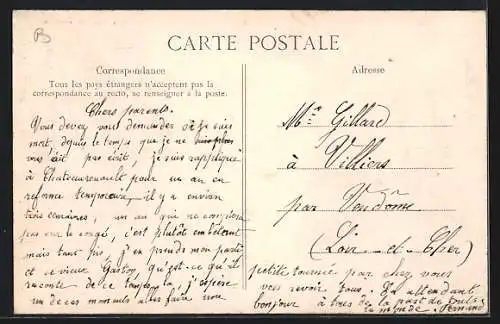 B
CARTE POSTALE
Correspondance
Tous les pays étrangers n'acceptent pas la
correspondance au recto, se renseigner à la poste.
Chers parents.
Vous devez vous demander si je suis
mort, depuis le temps que je ne
vous ai pas écrit, je suis rappliqué
à Chateaurenault pour un an en
reforme temporaire, il y a environ
trois semaines, un an qui ne comptera
pas sur le congé, c'est plutôt embêtant
mais tant pis, j'en prends mon parti
et ce vieux Gaston, qu'est-ce qu'il
raconte de ce temps la, j'espère
un de ces matins aller faire une
Adresse
Mr Gillard
à Villiers
par Vendôme
(Loir-et-Cher)
petite tournée par chez vous
vous revoir tous. En attendant
bonjour à tous de la part de tout
le monde. Fernand